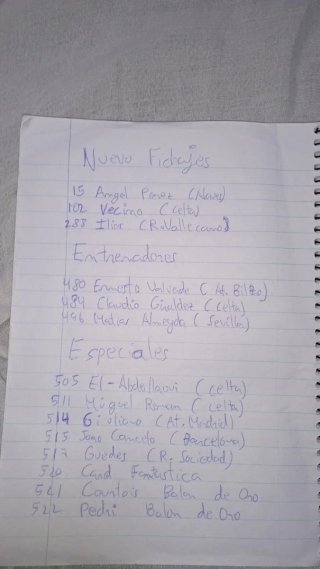 Nuevo Fichajes
15 Angel Perez (Alaves)
182 Vecino (Celta)
288 Ilias (R. Vallecano)
Entrenadores
480 Ernesto Valverde (At. Bilbao)
484 Claudio Giraldez (Celta)
496 Matias Almeyda (Sevilla)
Especiales
505 El-Abdellaoui (Celta)
511 Miguel Roman (Celta)
514 Giuliano (At. Madrid)
515 Joao Cancelo (Barcelona)
517 Guedes (R. Sociedad)
520 Card Fantastica
521 Courtois Balon de Oro
522 Pedri Balon de Oro